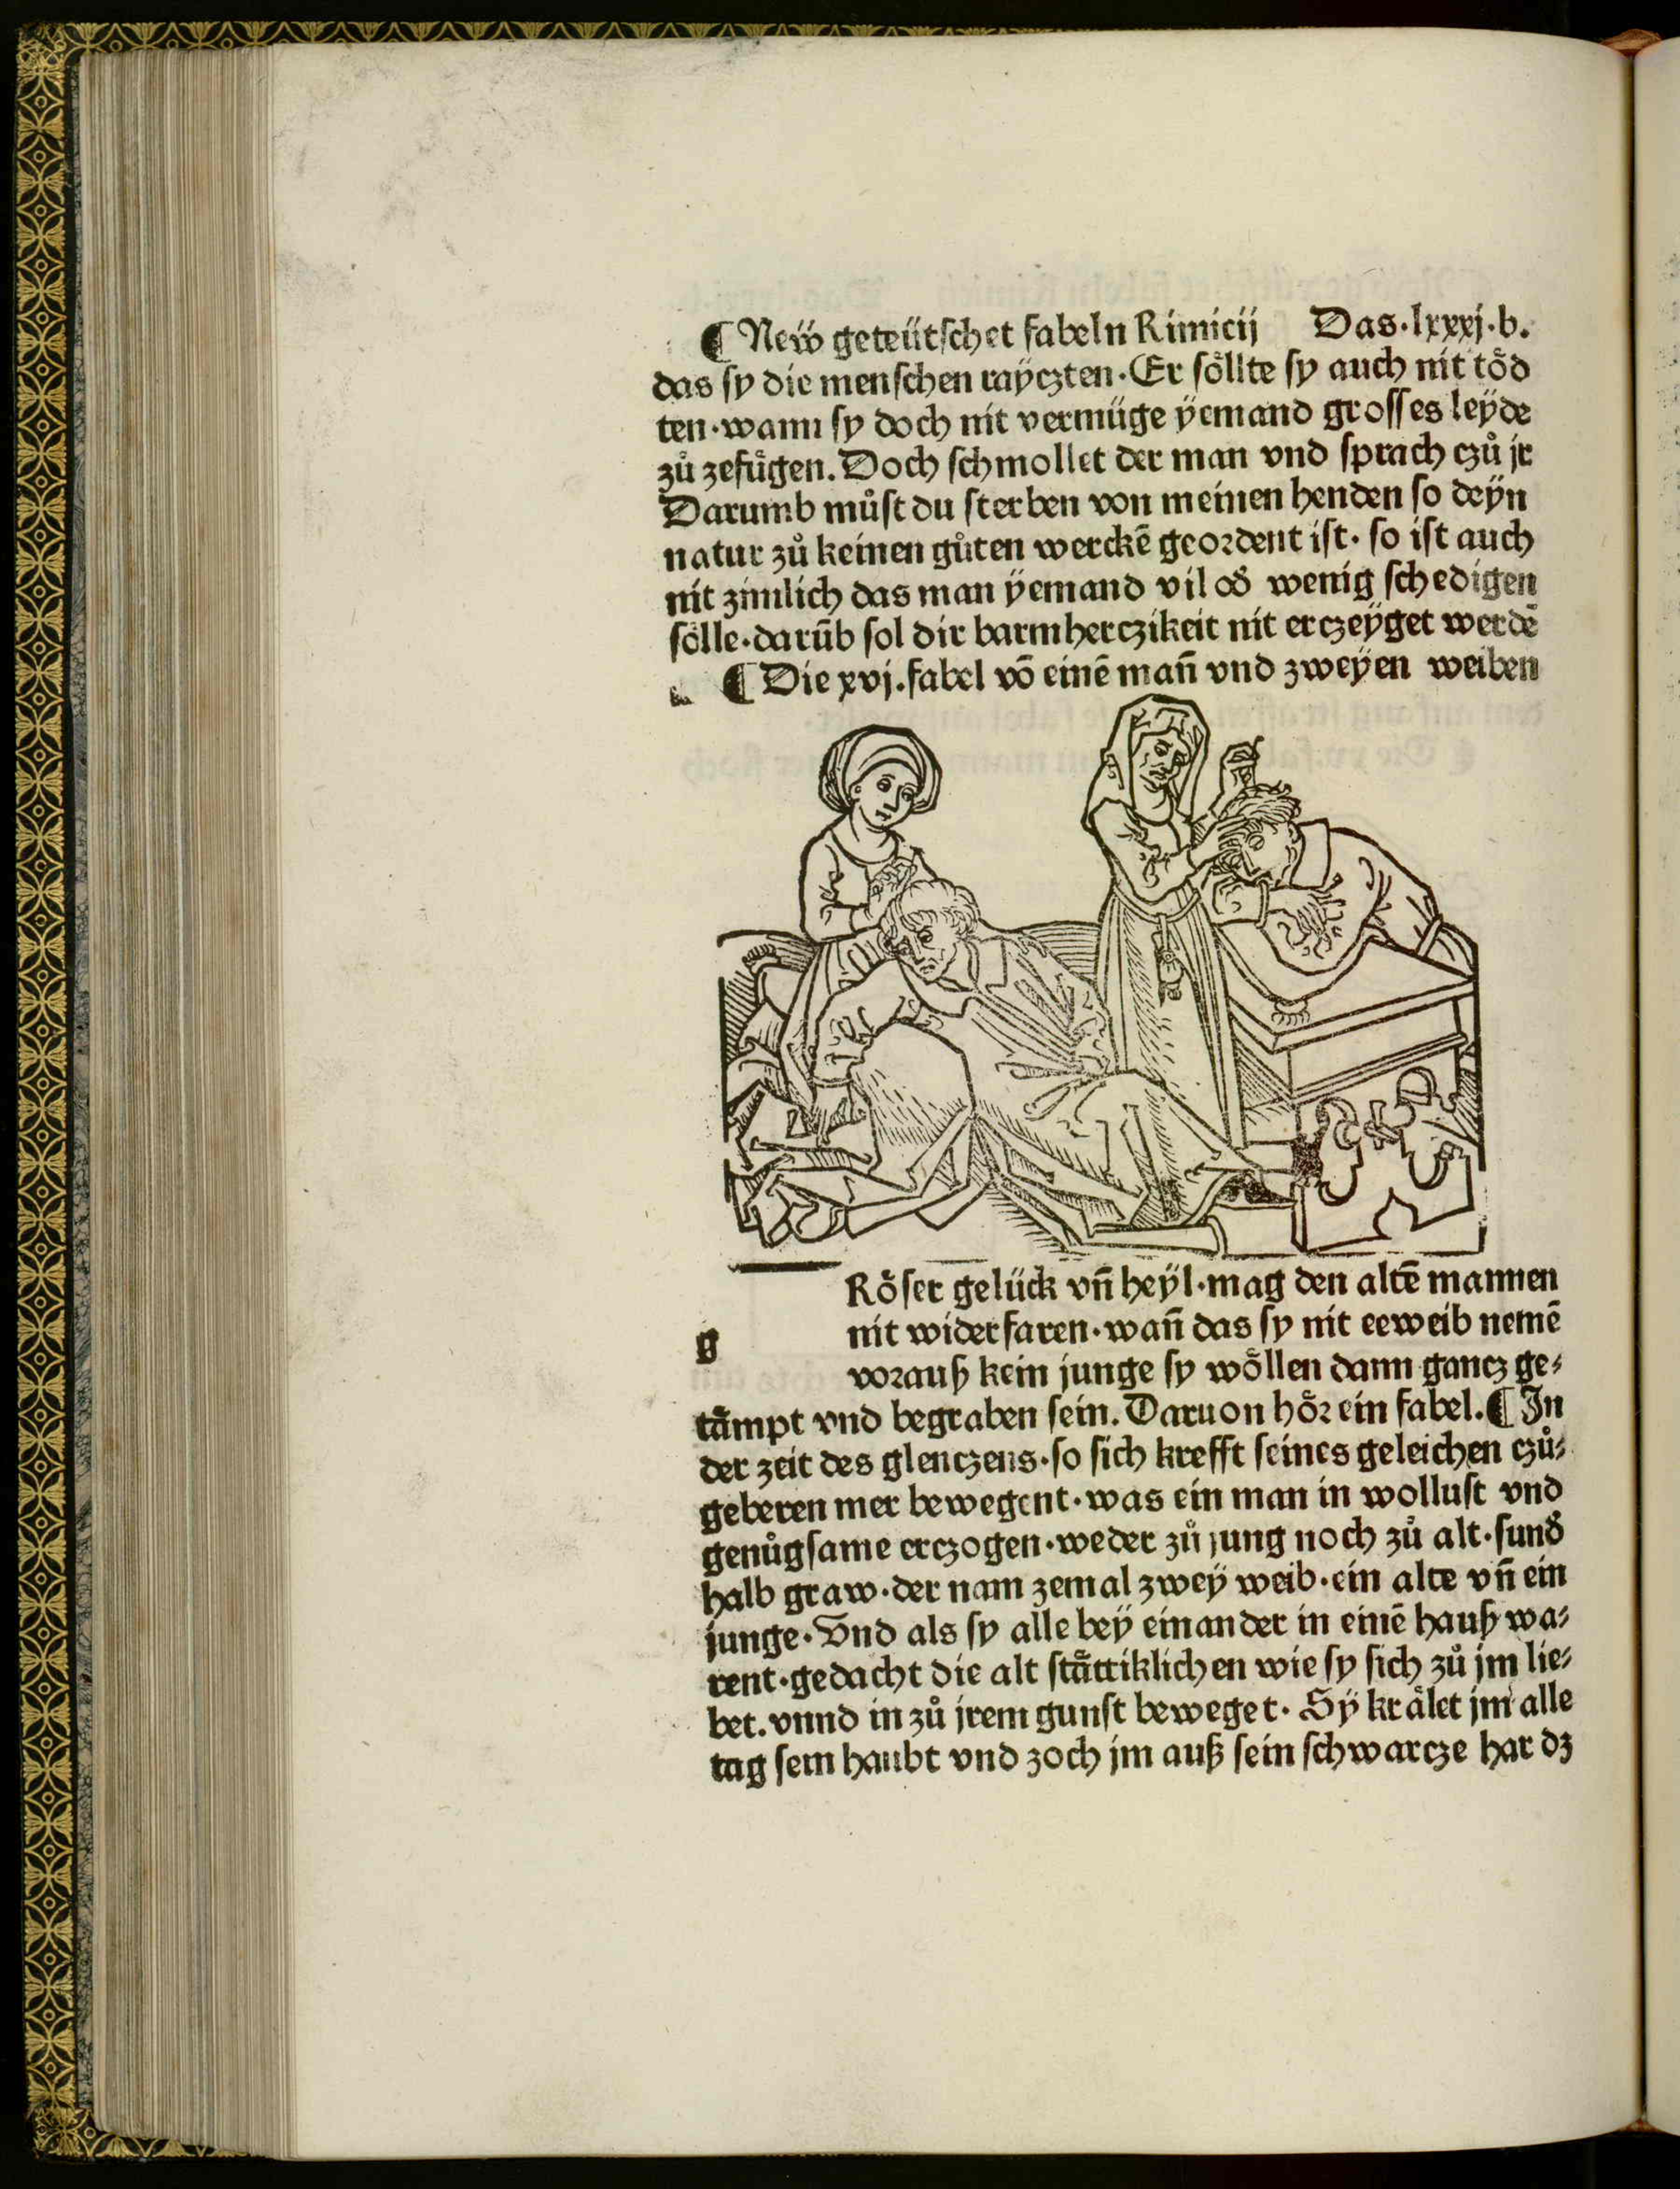 ¶ Neẅ geteütschet fabeln Rimicij Das·lxxxj·b.
das sy die menschen rayczten·Er soͤllte sy auch nit toͤd
ten·wann sy doch nit vermüge ÿemand grosses leÿde
zuͦ zefuͤgen. Doch schmollet der man vnd sprach czuͦ jr
Darumb muͦst du sterben von meinen henden so deÿn
natur zuͦ keinen guͦten werckē geordent ist· so ist auch
nit zimlich das man ÿemand vil od̕ wenig schedigen
soͤlle·darūb sol dir barmherczikeit nit erczeÿget werdē
¶ Die xvj.fabel vō einē mañ vnd zweÿen weiben
g Roͤser gelück vñ heÿl·mag den altē mannen
nit widerfaren·wañ das sy nit eeweib nemē
vorauß kein junge sy woͤllen dann gancz ge⸗
taͤmpt vnd begraben sein. Daruon hoͤr ein fabel.¶ In
der zeit des glenczens·so sich krefft seines geleichen czuͦ⸗
geberen mer bewegent·was ein man in wollust vnd
genuͦgsame erczogen·weder zuͦ jung noch zuͦ alt·sund̕
halb graw·der nam zemal zweÿ weib·ein alte vñ ein
junge·Vnd als sy alle beÿ einander in einē hauß wa⸗
rent·gedacht die alt staͤttiklichen wie sy sich zuͦ jm lie⸗
bet.vnnd in zuͦ jrem gunst beweget· Sÿ kraͤlet jm alle
tag sein haubt vnd zoch jm auß sein schwarcze har dz